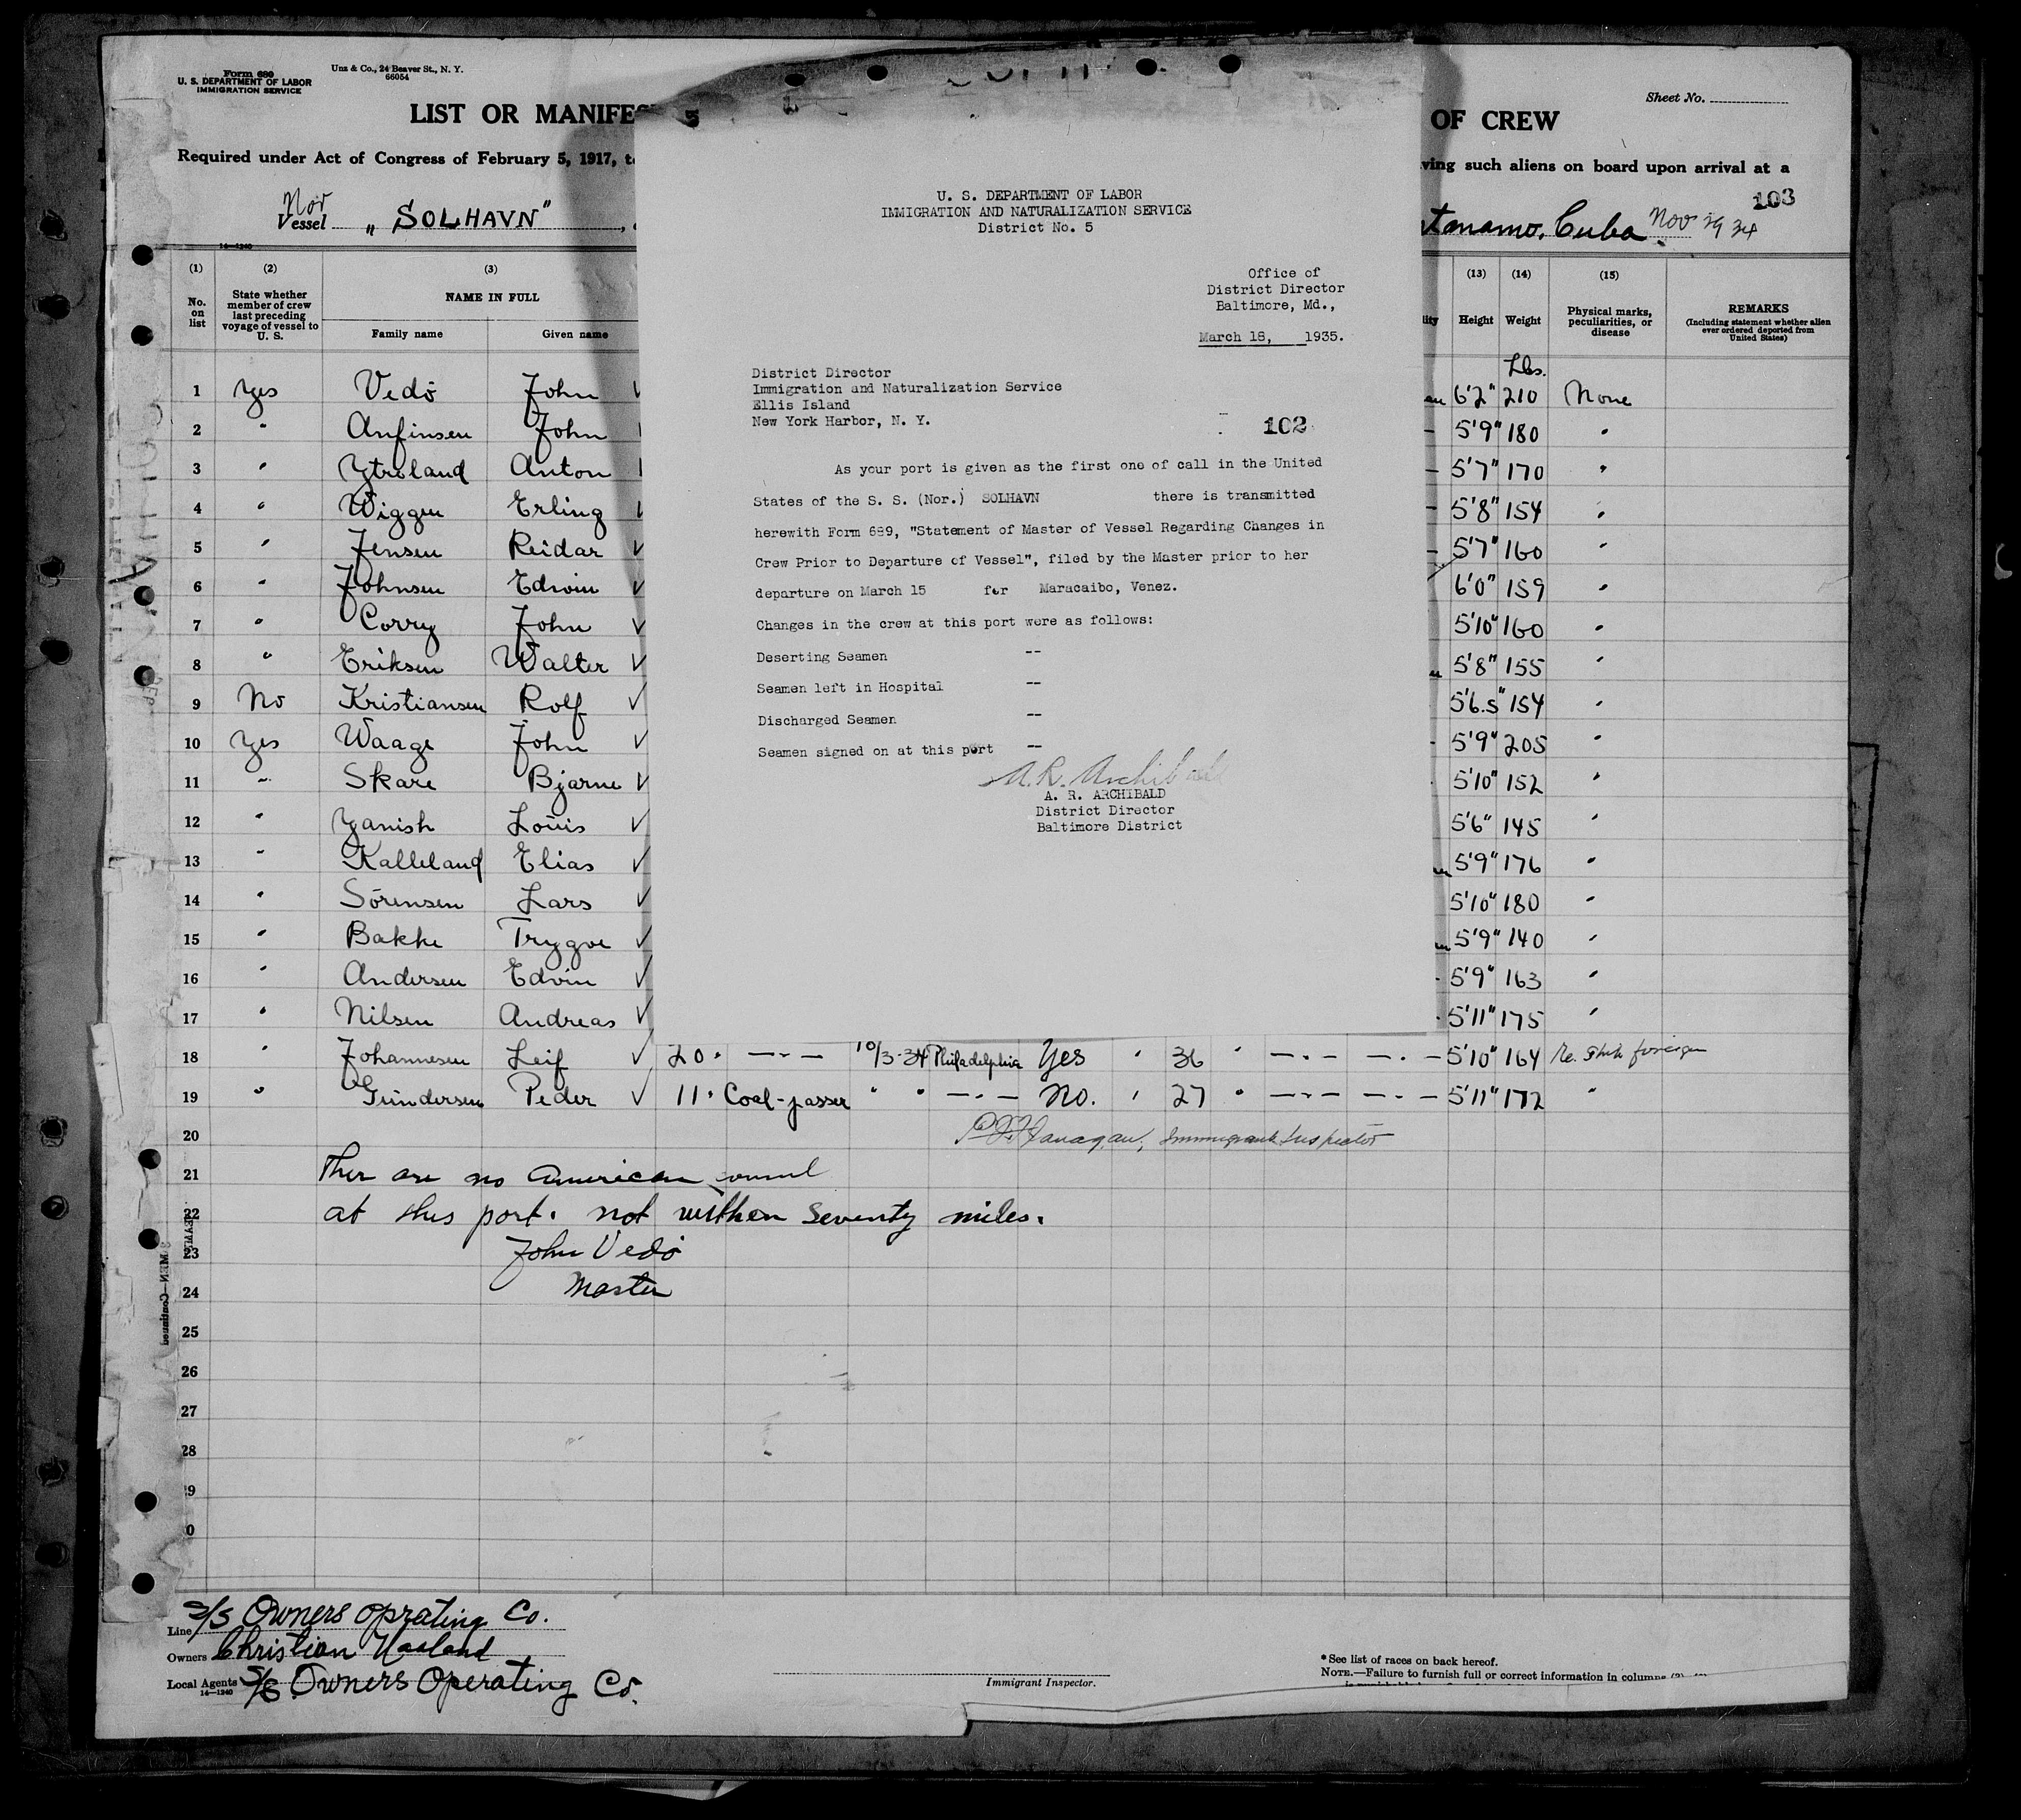 Form 680
U. S. DEPARTMENT OF LABOR
IMMIGRATION SERVICE
Unz & Co., 24 Beaver St., N. Y.
66054
Sheet No.
LIST OR MANIFES
OF CREW
Required under Act of Congress of February 5, 1917, t
ving such aliens on board upon arrival at a
103
Nor
Vessel "SOLHAVN"
tanamo, Cuba Nov 29 34
14—1240
(1) (2) (3) (13) (14) (15)
No. on list
State whether member of crew last preceding voyage of vessel to U. S.
NAME IN FULL
Family name Given name
Height Weight
Physical marks, peculiarities, or disease
REMARKS
(Including statement whether alien ever ordered deported from United States)
Lbs.
1 Yes Vedö John ✓ 6'2" 210 None
2 " Anfinsen John 5'9" 180 "
3 " Ytreland Anton 5'7" 170 "
4 " Wiggen Erling 5'8" 154 "
5 " Jensen Reidar ✓ 5'7" 160 "
6 " Johnsen Edwin ✓ 6'0" 159 "
7 " Corry John ✓ 5'10" 160 "
8 " Eriksen Walter ✓ 5'8" 155 "
9 No Kristiansen Rolf ✓ 5'6.5" 154 "
10 Yes Waage John ✓ 5'9" 205 "
11 " Skare Bjarne ✓ 5'10" 152 "
12 " Yanish Louis ✓ 5'6" 145 "
13 " Kalleland Elias ✓ 5'9" 176 "
14 " Sörensen Lars ✓ 5'10" 180 "
15 " Bakke Trygve ✓ 5'9" 140 "
16 " Andersen Edvin ✓ 5'9" 163 "
17 " Nilsen Andreas ✓ 5'11" 175 "
18 " Johannesen Leif ✓ 20 " —"— 10/3-34 Philadelphia Yes " 36 " —"— —"— 5'10" 164
19 " Gundersen Peder ✓ 11 " Coal-passer " " —"— No. " 27 " —"— —"— 5'11" 172 "
20 Immigrant Inspector
21 Ther are no American consul
22 at this port. not withen Seventy miles.
23 John Vedö
24 Master
25
26
27
28
29
30
Line S/S Owners Oprating Co.
Owners Christian Haaland
Local Agents S/S Owners Operating Co.
14—1240
Immigrant Inspector.
* See list of races on back hereof.
NOTE.—Failure to furnish full or correct information in columns
U. S. DEPARTMENT OF LABOR
IMMIGRATION AND NATURALIZATION SERVICE
District No. 5
Office of
District Director
Baltimore, Md.,
March 18, 1935.
District Director
Immigration and Naturalization Service
Ellis Island
New York Harbor, N. Y.
102
As your port is given as the first one of call in the United
States of the S. S. (Nor.) SOLHAVN there is transmitted
herewith Form 689, "Statement of Master of Vessel Regarding Changes in
Crew Prior to Departure of Vessel", filed by the Master prior to her
departure on March 15 for Maracaibo, Venez.
Changes in the crew at this port were as follows:
Deserting Seamen --
Seamen left in Hospital --
Discharged Seamen --
Seamen signed on at this port --
A. R. Archibald
A. R. ARCHIBALD
District Director
Baltimore District